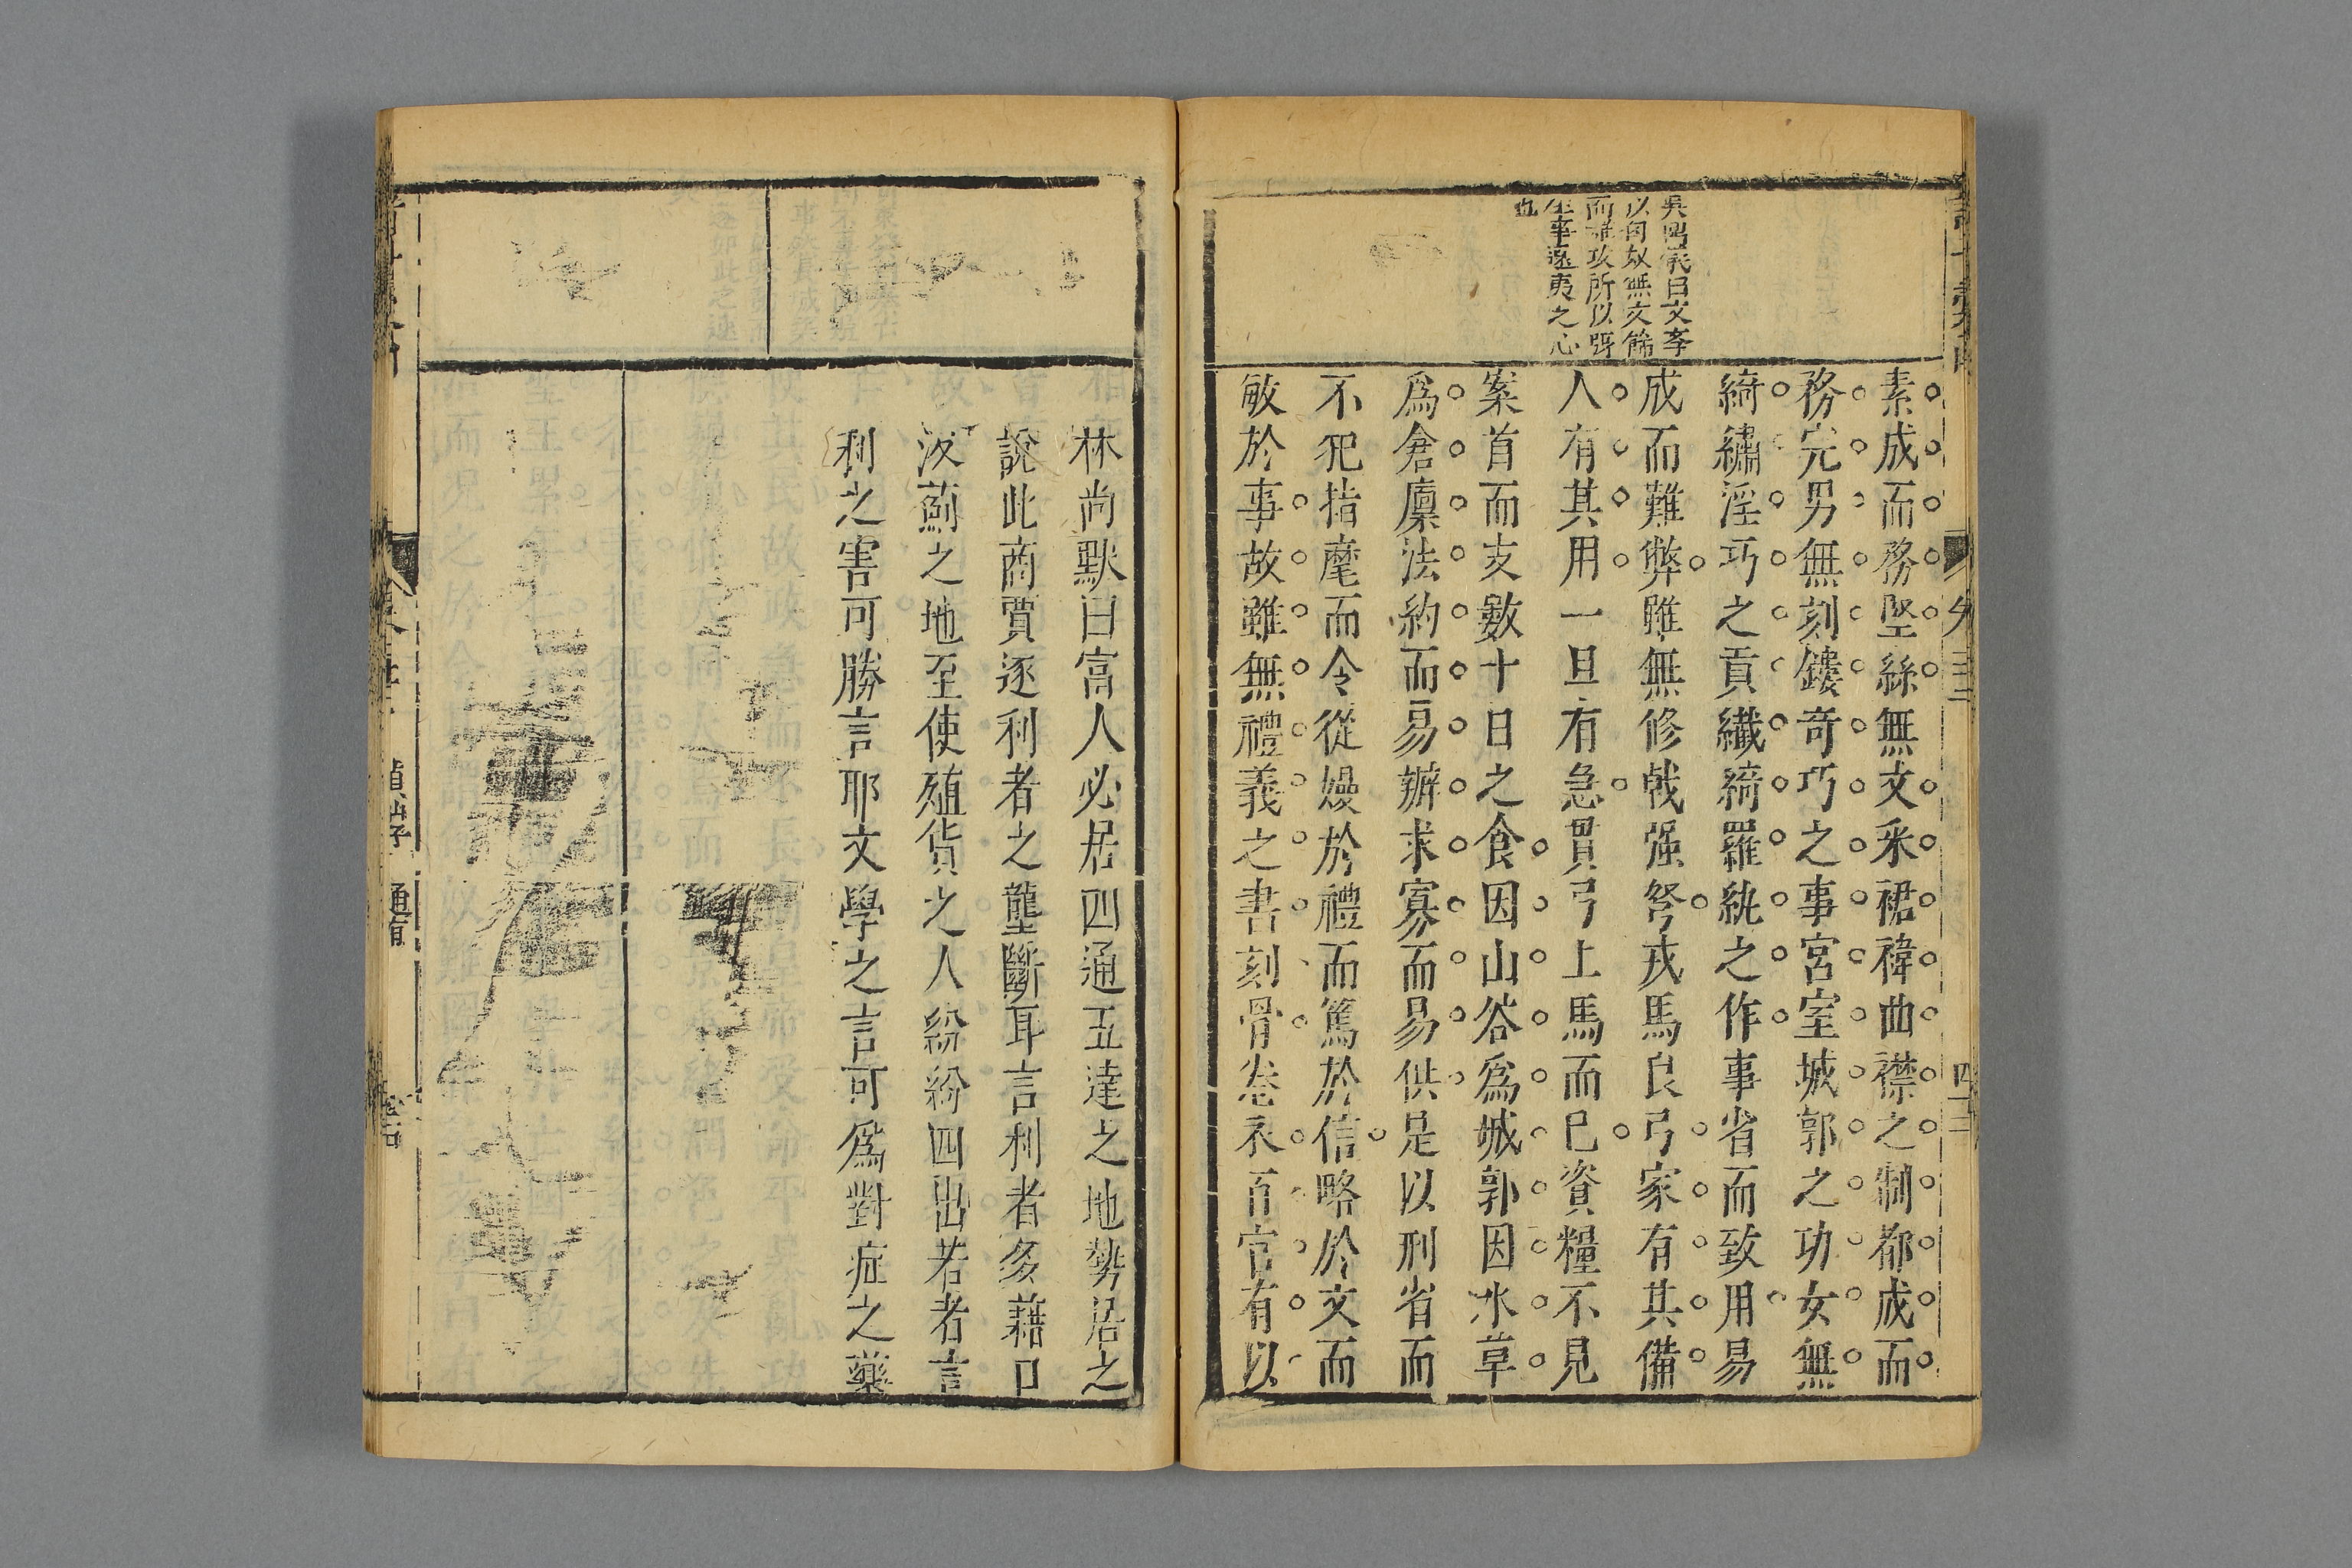 素成而務堅絲無文采裙褘曲襟之制都成而
務完男無刻鏤奇巧之事宮室城郭之功女無
綺繡淫巧之貢纖綺羅紈之作事省而致用易
成而難弊雖無修戟强弩戎馬良弓家有其備
人有其用一旦有急貫弓上馬而已資糧不見
案首而支數十日之食因山谷爲城郭因水草
爲倉廩法約而易辦求寡而易供是以刑省而
不犯指麾而令從嫚於禮而篤於信略於文而
敏於事故雖無禮義之書刻骨卷衣百官有以
曰文李
以匈奴無文飾
而難攻所以
生事邊夷之心
也
四十三
林尚默曰富人必居四通五達之地勢居之
說此商賈逐利者之壟斷耳言利者多藉口
汲薊之地至使殖貨之人紛紛四出若者言
利之害可勝言耶文學之言可爲對症之藥
通有